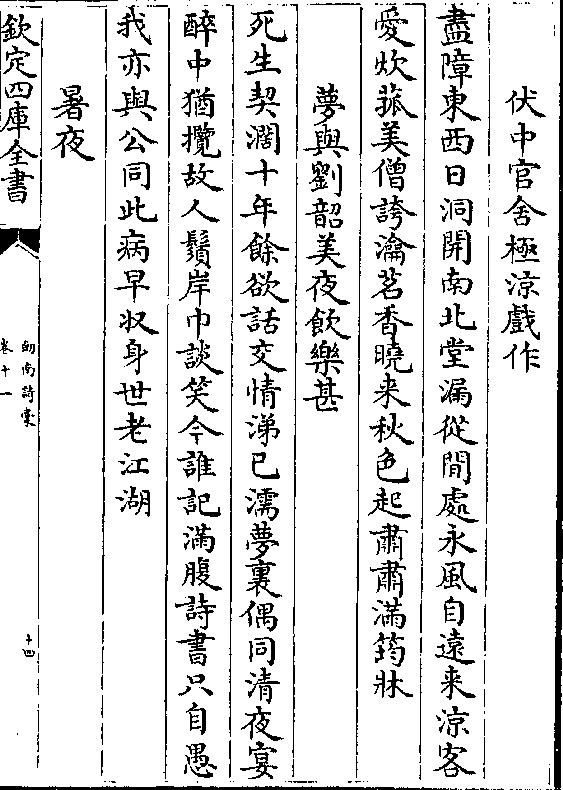 伏中官舍極涼戲作
盡障東西日洞開南北堂漏從閒處永風自遠来涼客
愛炊菰美僧誇瀹茗香曉来秋色起肅肅滿筠牀
夢與劉韶美夜飲樂甚
死生契濶十年餘欲話交情涕已濡夢裏偶同清夜宴
醉中猶攬故人鬚岸巾談笑今誰記滿腹詩書只自愚
我亦與公同此病早收身世老江湖
暑夜
欽定四庫全書
劔南詩稾
卷十一
十四